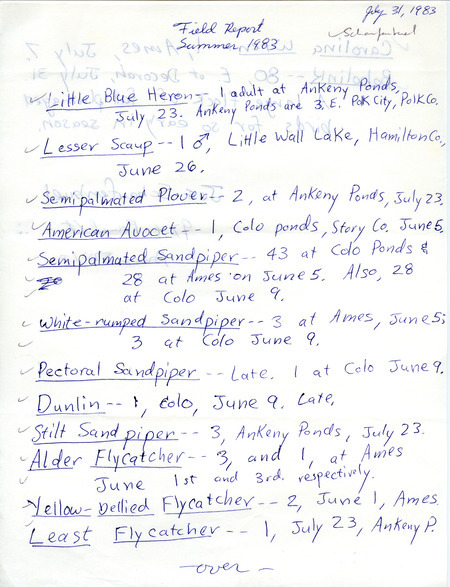 July 31, 1983
Field Report
Summer 1983
Little Blue Heron -- 1 adult at Ankeny Ponds,
July 23. Ankeny Ponds are 3 E. Polk City, Polk Co.
Lesser Scaup -- 1 ♂, Little Wall Lake, Hamilton Co.,
June 26.
Semipalmated Plover -- 2, at Ankeny Ponds, July 23.
American Avocet -- 1, Colo ponds, Story Co. June 5.
Semipalmated Sandpiper -- 43 at Colo Ponds &
28 at Ames on June 5. Also, 28
at Colo June 9.
White-rumped Sandpiper -- 3 at Ames, June 5;
3 at Colo June 9.
Pectoral Sandpiper -- Late. 1 at Colo June 9.
Dunlin -- 1, Colo, June 9. Late.
Stilt Sandpiper -- 3, Ankeny Ponds, July 23.
Alder Flycatcher -- 3, and 1, at Ames
June 1st and 3rd. respectively.
Yellow-bellied Flycatcher -- 2, June 1, Ames.
Least Flycatcher -- 1, July 23, Ankeny P.
-over-